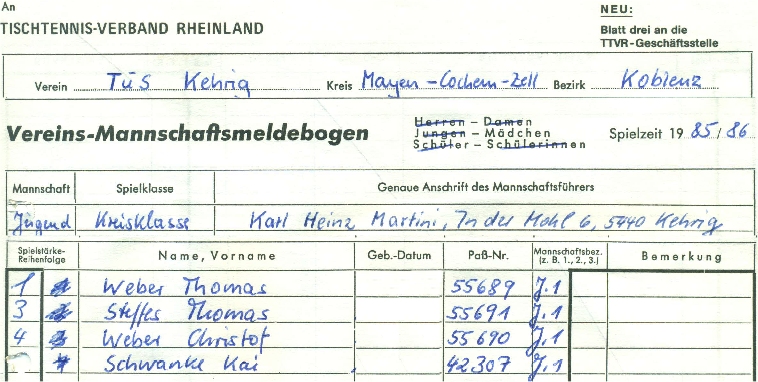 An
TISCHTENNIS-VERBAND RHEINLAND
NEU:
Blatt drei an die
TTVR-Geschäftsstelle
Verein TUS Kehrig Kreis Mayen-Cochem-Zell Bezirk Koblenz
Vereins-Mannschaftsmeldebogen
Herren – Damen
Jungen – Mädchen
Schüler – Schülerinnen
Spielzeit 19 85/86
Mannschaft Spielklasse Genaue Anschrift des Mannschaftsführers
Jugend Kreisklasse Karl Heinz Martini, In der Mohl 6, 5440 Kehrig
Spielstärke-Reihenfolge Name, Vorname Geb.-Datum Paß-Nr. Mannschaftsbez. (z. B. 1., 2., 3.) Bemerkung
1 Weber Thomas 55689 J.1
3 Steffes Thomas 55691 J.1
4 Weber Christof 55690 J.1
Schwanke Kai 42307 J.1